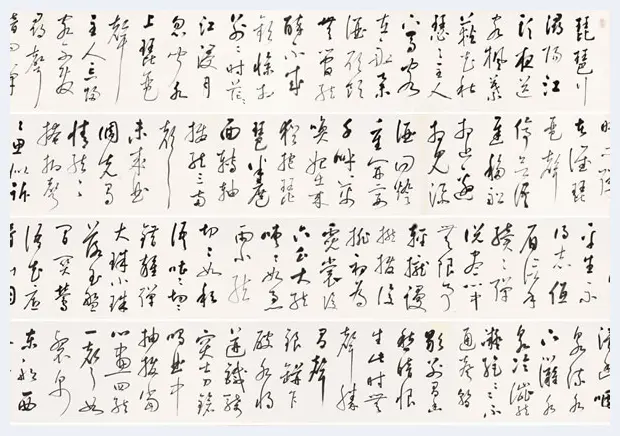 琵琶行
潯陽江
頭夜送
客楓葉
荻花秋
瑟瑟主人
下馬客
在船舉
酒欲飲
無管絃
醉不成
歡慘將
別別時茫
江浸月
忽聞水
上琵琶
聲
主人忘歸
客不發
尋聲
暗問彈
者誰琵
琶聲
停欲語
遲移船
相近邀
相見添
酒回燈
重開宴
千呼萬
喚始出來
猶抱琵
琶半遮
面轉軸
撥絃三兩
聲
未成曲
調先有
情絃絃
掩抑聲
聲思似訴
平生不
得志低
眉信手
續續彈
說盡心中
無限事
輕攏慢
撚撥復
挑初為
霓裳後
六幺大絃
嘈嘈如急
雨小絃
切切如私
語嘈嘈切切
錯雜彈
大珠小珠
落玉盤
間關鶯
語花底
泉流水
下灘水
泉冷澀絃
凝絕凝絕不
通聲暫
歇別有幽
愁暗恨
生此時無
聲勝
有聲
銀瓶乍
破水漿
迸鐵騎
突出刀鎗
鳴曲終
抽撥當
心畫四絃
一聲如
裂帛
東船西